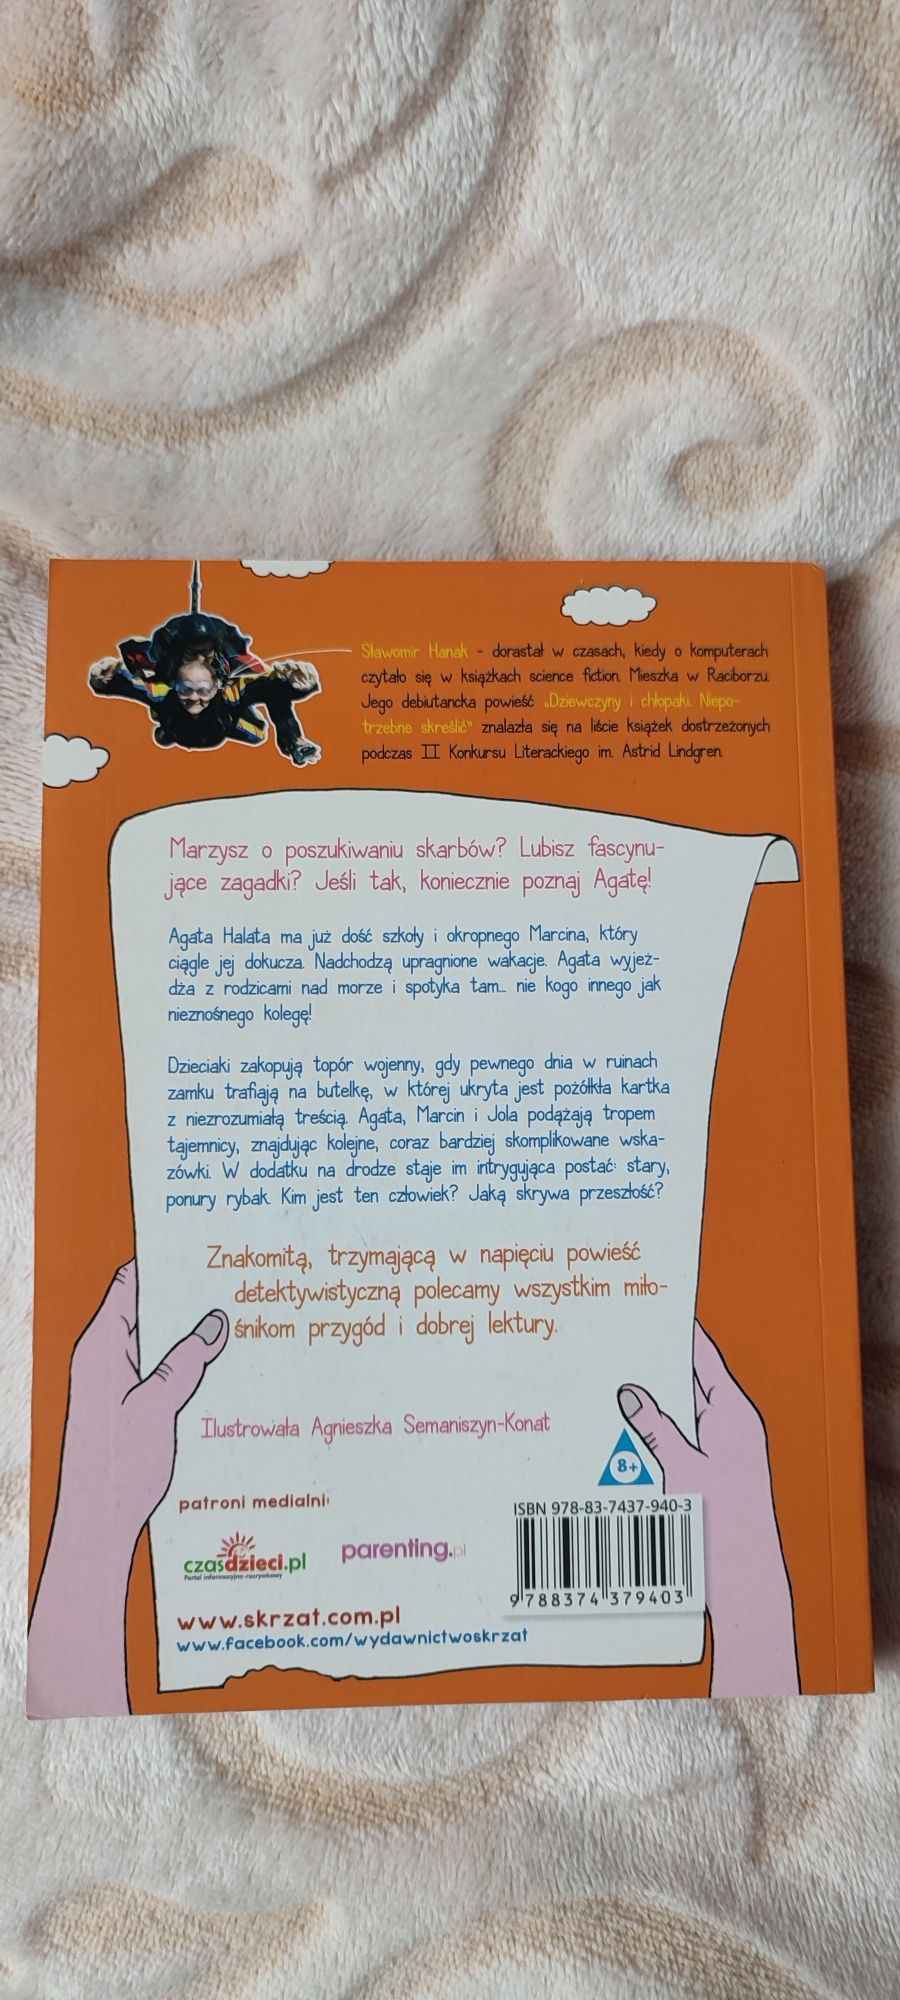 Sławomir Hanak - dorastał w czasach, kiedy o komputerach
czytało się w książkach science fiction. Mieszka w Raciborzu.
Jego debiutancka powieść „Dziewczyny i chłopaki. Niepo-
trzebne skreślić" znalazła się na liście książek dostrzeżonych
podczas II Konkursu Literackiego im. Astrid Lindgren.
Marzysz o poszukiwaniu skarbów? Lubisz fascynu-
jące zagadki? Jeśli tak, koniecznie poznaj Agatę!
Agata Halata ma już dość szkoły i okropnego Marcina, który
ciągle jej dokucza. Nadchodzą upragnione wakacje. Agata wyjeż-
dża z rodzicami nad morze i spotyka tam... nie kogo innego jak
nieznośnego kolegę!
Dzieciaki zakopują topór wojenny, gdy pewnego dnia w ruinach
zamku trafiają na butelkę, w której ukryta jest pożółkła kartka
z niezrozumiałą treścią. Agata, Marcin i Jola podążają tropem
tajemnicy, znajdując kolejne, coraz bardziej skomplikowane wska-
zówki. W dodatku na drodze staje im intrygująca postać: stary,
ponury rybak. Kim jest ten człowiek? Jaką skrywa przeszłość?
Znakomitą, trzymającą w napięciu powieść
detektywistyczną polecamy wszystkim miło-
śnikom przygód i dobrej lektury.
Ilustrowała Agnieszka Semaniszyn-Konat
8+
patroni medialni:
ISBN 978-83-7437-940-3
czasdzieci.pl
Portal informacyjno-rozrywkowy
parenting.pl
9 788374 379403
www.skrzat.com.pl
www.facebook.com/wydawnictwoskrzat